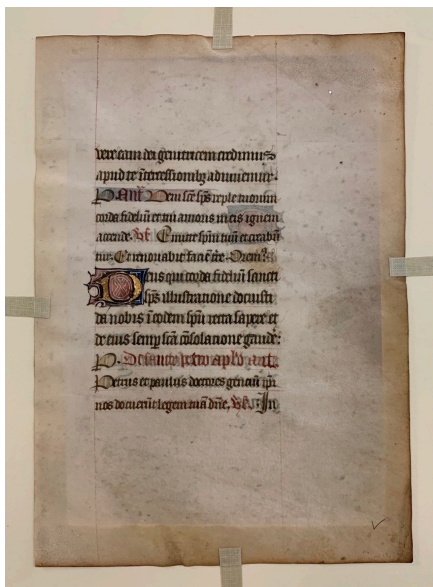 vere eam dei genitricem credimus
apud te ītercessionibꝫ adiuvemur.
P. ant̄ Veni sc̄e sp̄s reple tuorum
corda fideliū et tui amoris in eis ignem
accende. V̄s. Emitte sp̄m tuū et creabū
tur. Et renovabis faciē t̄re. Orem⁹.
Deus qui corda fideliū sancti
sp̄s illustratione docuisti
da nobis ī eodem sp̄u recta sapere et
de eius semp sc̄a cōsolatione gaudē:
P. De sancto petro ap̄lo ant̄.
Petrus et paulus doctores genciū ip̄i
nos docuerūt legem tuā dn̄e. V̄s. In